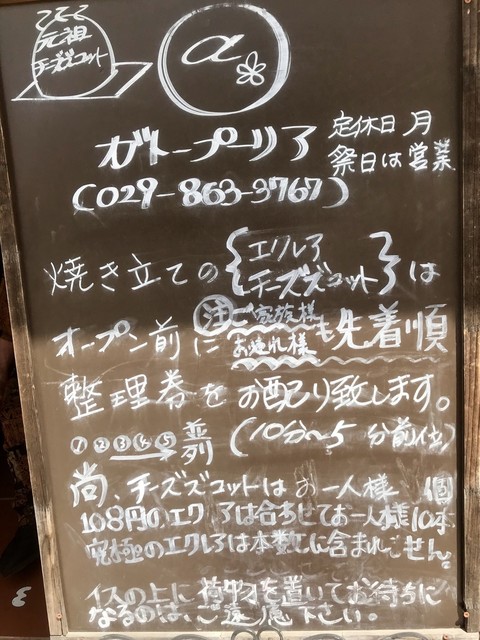 元祖
チーズズコット
α
ガトープーリア
定休日 月
祭日は営業
(029-863-3767)
焼き立ての{エクレア チーズズコット}は
オープン前に 注 ご家族様 お連れ様 も先着順
整理券をお配り致します。
①②③④⑤ 並列 (10分〜5分前位)
尚、チーズズコットはお一人様 個
108円のエクレアは合わせてお一人様10本
究極のエクレアは本数に含まれません。
イスの上に荷物を置いてお待ちに
なるのは、ご遠慮下さい。